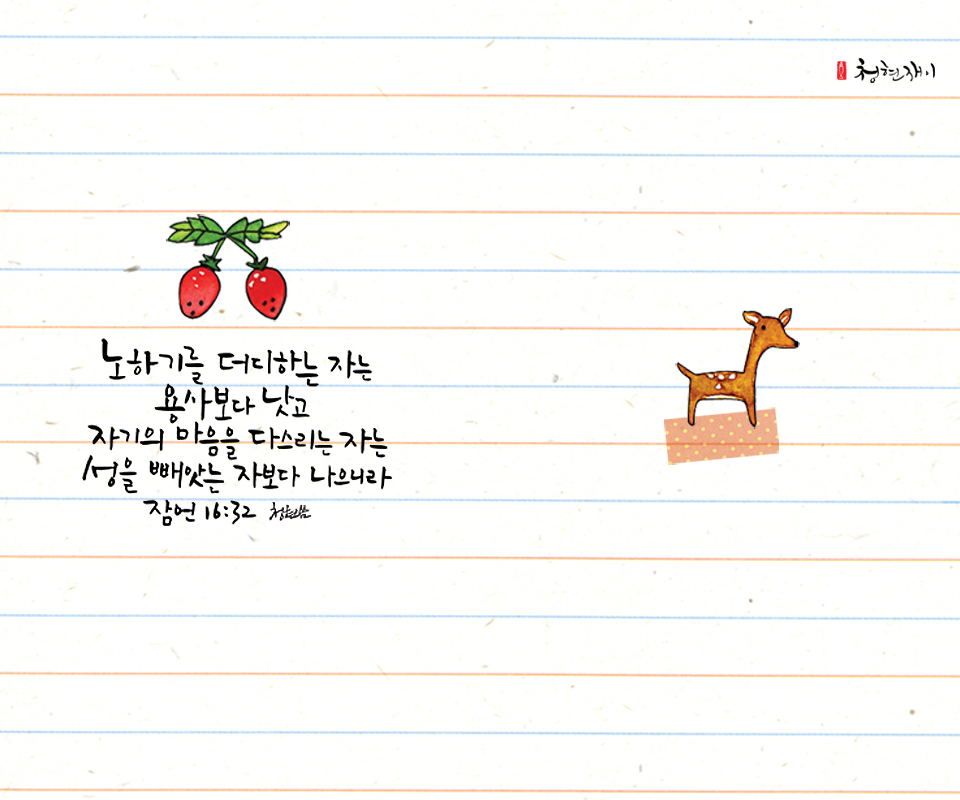 청현재이
노하기를 더디하는 자는
용사보다 낫고
자기의 마음을 다스리는 자는
성을 빼앗는 자보다 나으니라
잠언 16:32